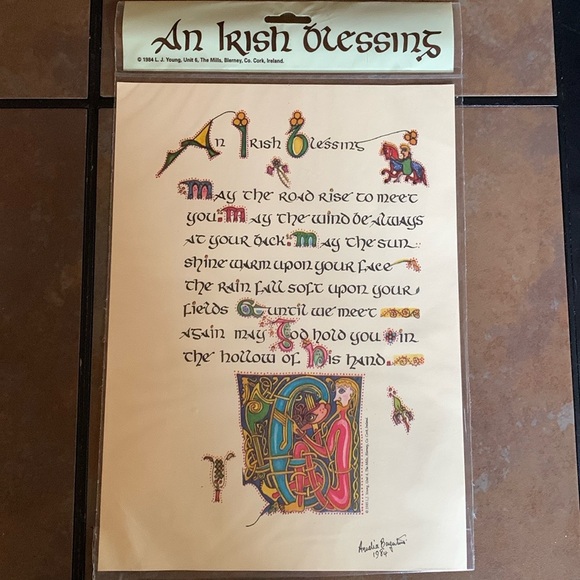 An Irish Blessing
© 1984 L. J. Young, Unit 6, The Mills, Blarney, Co. Cork, Ireland.
An Irish Blessing
May the road rise to meet
you. May the wind be always
at your back. May the sun
shine warm upon your face
the rain fall soft upon your
fields & until we meet
again may God hold you in
the hollow of His hand.
1984